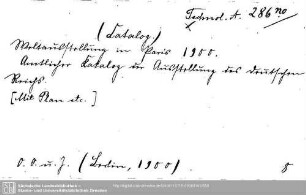 Technol. A. 286 no
(Katalog)
Weltausstellung in Paris 1900.
Amtlicher Katalog der Ausstellung des Deutschen
Reichs.
[Mit Plan etc.]
O. O. u. J. (Berlin, 1900)
8
Sächsische Landesbibliothek -
Staats- und Universitätsbibliothek Dresden